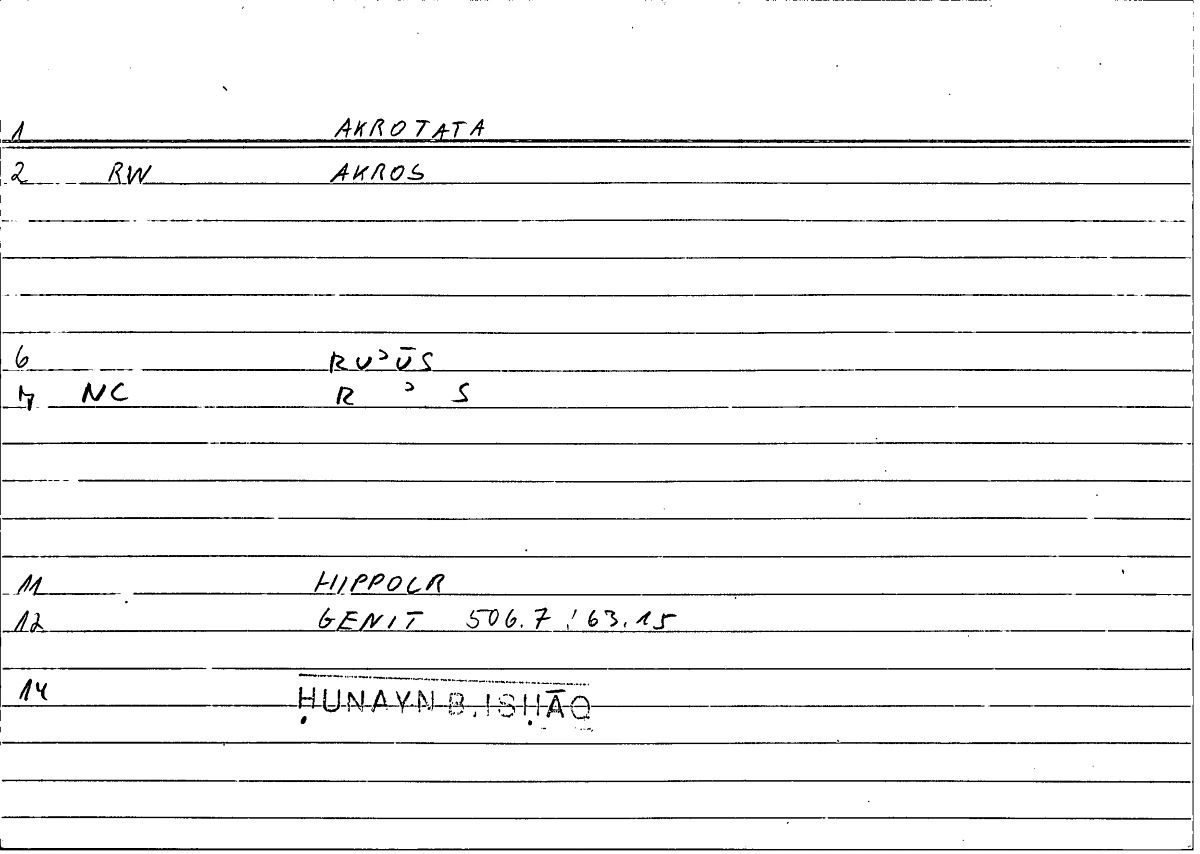 1 AKROTATA
2 RW AKROS
6 RUʾŪS
7 NC R ʾ S
11 HIPPOCR
12 GENIT 506.7 ! 63.15
14 ḤUNAYN B. ISḤĀQ